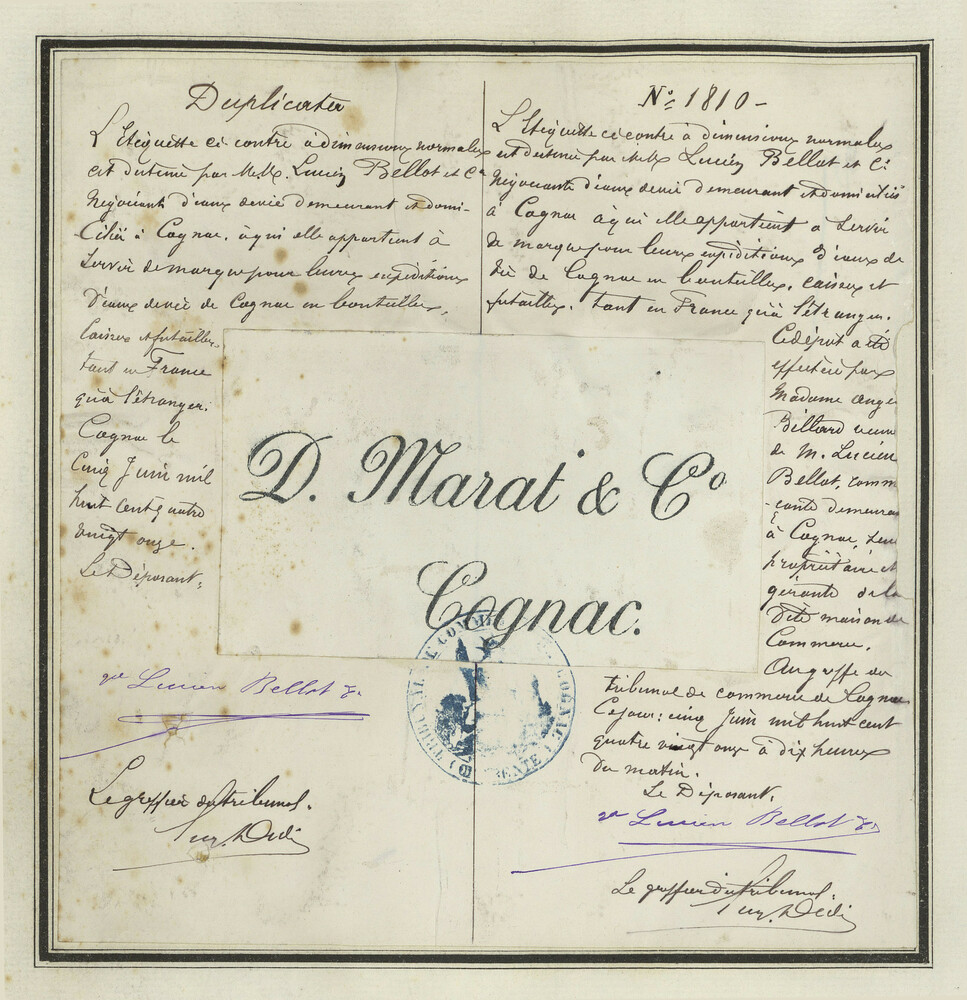 Duplicata
L'Etiquette ci contre à dimensions normales
est destinée par M.M. Lucien Bellot et Cie
Négociants d'eaux de vie demeurant et domi-
-ciliés à Cognac, à qui elle appartient à
Servir de marque pour leurs expéditions
d'eaux de vie de Cognac en bouteilles,
Caisses et futailles,
tant en France
qu'à l'étranger.
Cognac le
Cinq Juin mil
huit cent quatre
vingt onze.
Le Déposant,
ve Lucien Bellot &
Le greffier du tribunal.
No 1810 -
L'Etiquette ci contre à dimensions normales
est destinée par M.M. Lucien Bellot et Cie
Négociants d'eaux de vie demeurant et domiciliés
à Cognac à qui elle appartient à Servir
de marque pour leurs expéditions d'eaux de
vie de Cognac en bouteilles, caisses et
futailles, tant en France qu'à l'étranger.
Ce dépôt a été
effectué par
Madame Ange
Billard veuve
de M. Lucien
Bellot, comm
-erçante demeurant
à Cognac, seule
propriétaire et
gérante de la
dite maison de
Commerce.
Au greffe du
tribunal de commerce de Cognac
Ce jour: cinq Juin mil huit cent
quatre vingt onze à dix heures
du matin.
Le Déposant,
ve Lucien Bellot &
Le greffier du tribunal.
D. Marat & Co
Cognac.
TRIBUNAL DE COMMERCE COGNAC (CHARENTE)